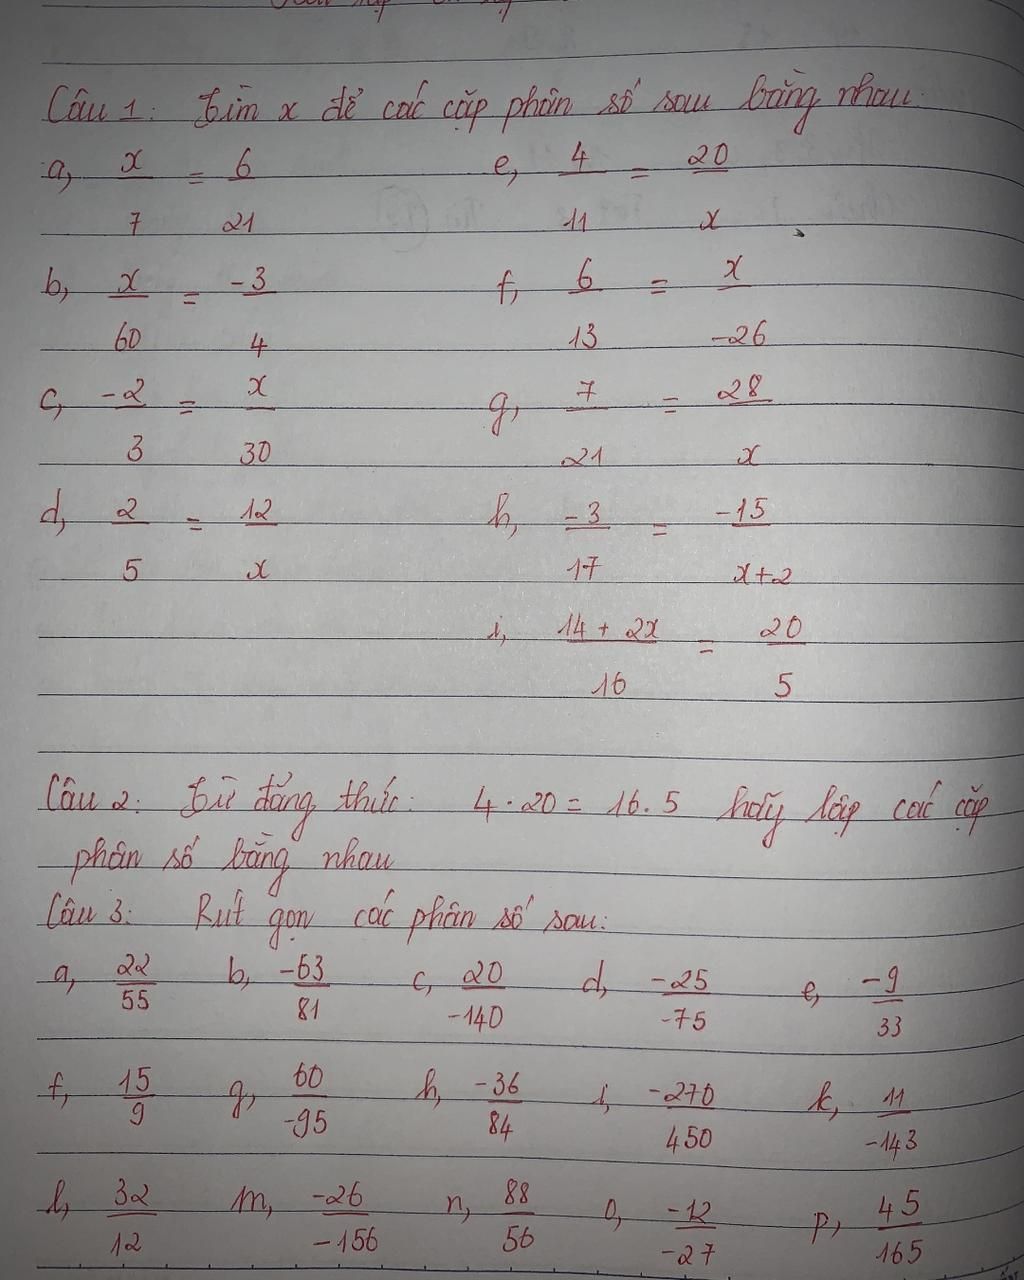 Câu 1: Tìm x để các cặp phân số sau bằng nhau.
a, x/7 = 6/21 e, 4/11 = 20/x
b, x/60 = -3/4 f, 6/13 = x/-26
c, -2/3 = x/30 g, 7/21 = 28/x
d, 2/5 = 12/x h, -3/17 = -15/x+2
i, 14 + 2x/16 = 20/5
Câu 2: Từ đẳng thức: 4 . 20 = 16 . 5 hãy lập các cặp
phân số bằng nhau
Câu 3: Rút gọn các phân số sau:
a, 22/55 b, -63/81 c, 20/-140 d, -25/-75 e, -9/33
f, 15/9 g, 60/-95 h, -36/84 i, -270/450 k, 11/-143
l, 32/12 m, -26/-156 n, 88/56 o, -12/-27 p, 45/165